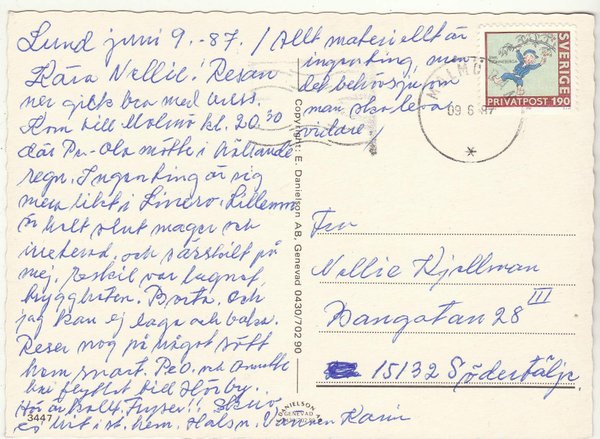 Lund juni 9. -87.
Kära Nellie! Resan
ner gick bra med buss.
Kom till Malmö kl. 20.30
där Per-Ola mötte i hällande
regn. Ingenting är sig
mera likt i Linero. Lillemor
är helt slut mager och
irriterad, och särskilt på
mej. Eskil var lugnast,
Borta. och
jag kan ej laga och baka.
Reser nog på något sätt
hem snart. P.O. och Annette
har flyttat till Hörby.
Här är kallt. Fryser!! Skriv
ej hit i st. hem. Hälsn. Vännen Karin
/ Allt materiellt är
ingenting, men
det behövs ju om
man ska leva
vidare/
SVERIGE
PRIVATPOST 190
MALMÖ
09 6 87
*
Copyright: E. Danielson AB, Genevad 0430/702 90
Fru
Nellie Kjellman
Bangatan 28 III
15132 Södertälje
3447
DANIELSON
GENEVAD